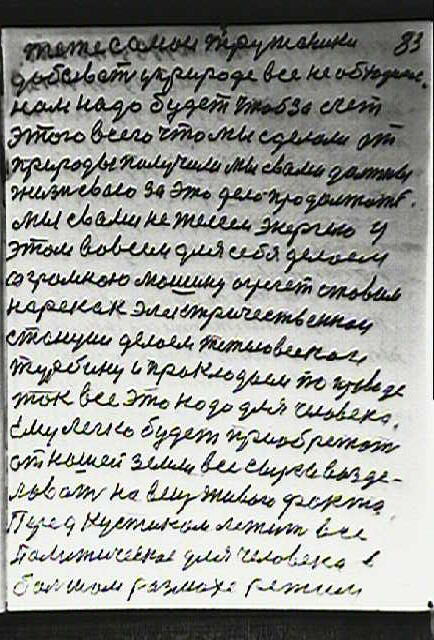 теже самои труженики 83
добиват уприроде все необходи
нам надо будет чтобза счет
этого всего чтомы сделали от
природы получили мы свами должны
жизнь свою за это дело продолжать.
мы свами не жилем энергию и
этом вовсем для себя делаем
огромною машину агрегат ставим
нареках электричественной
станции делаем тепловеская
турбину и прокладаем по проводе
ток все это надо для человека.
Ему легко будет приобретат
от нашей земли все сырье возде-
ловат на вещ живого факта.
Перед Кустиком лежит все
Политическое для человека в
большом размахе режим